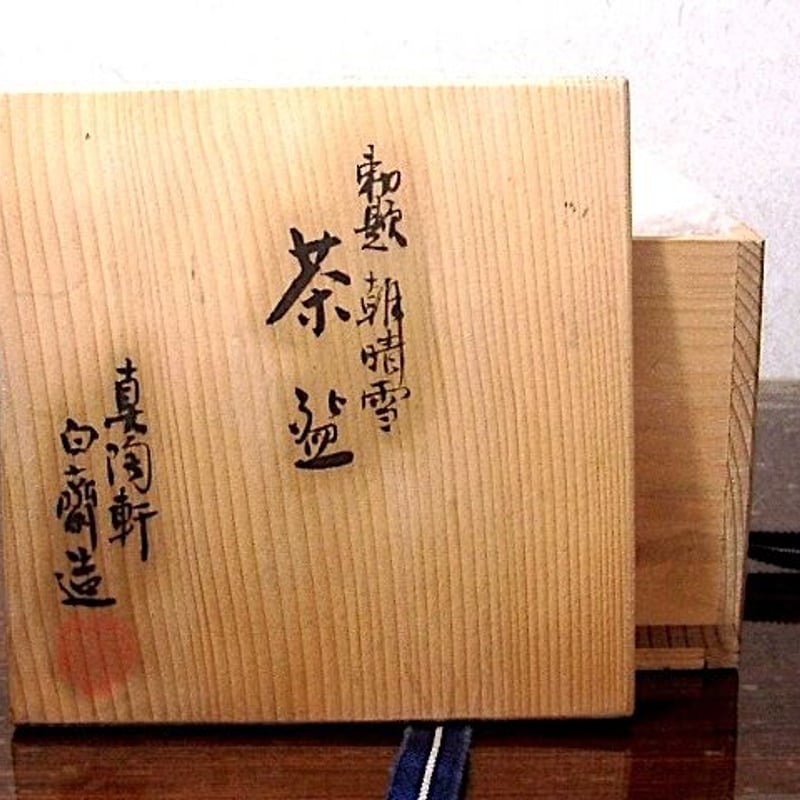 勅題 朝晴雪
茶盌
真陶軒
白齋造